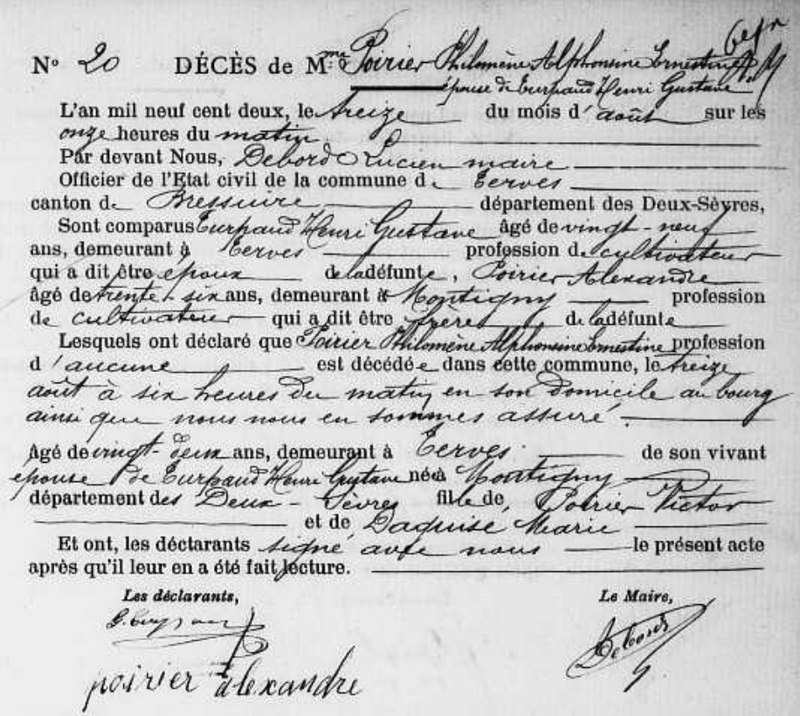 N° 20 DÉCÈS de Mme Poirier Philomène Alphonsine Ernestine
épouse de Turpaud Henri Gustave
L'an mil neuf cent deux, le treize du mois d'août sur les
onze heures du matin
Par devant Nous, Debord Lucien maire
Officier de l'Etat civil de la commune de Terves
canton de Bressuire département des Deux-Sèvres,
Sont comparus Turpaud Henri Gustave âgé de vingt-neuf
ans, demeurant à Terves profession de cultivateur
qui a dit être époux de la défunte, Poirier Alexandre
âgé de trente-six ans, demeurant à Montigny profession
de cultivateur qui a dit être frère de la défunte
Lesquels ont déclaré que Poirier Philomène Alphonsine Ernestine profession
d'aucune est décédée dans cette commune, le treize
août à six heures du matin en son domicile au bourg
ainsi que nous nous en sommes assuré.
Agé de vingt-deux ans, demeurant à Terves de son vivant
épouse de Turpaud Henri Gustave née à Montigny
département des Deux-Sèvres fille de Poirier Victor
et de Daguise Marie
Et ont, les déctarants signé avec nous le présent acte
après qu'il leur en a été fait lecture.
Les déclarants, Le Maire,
Debord
poirier alexandre